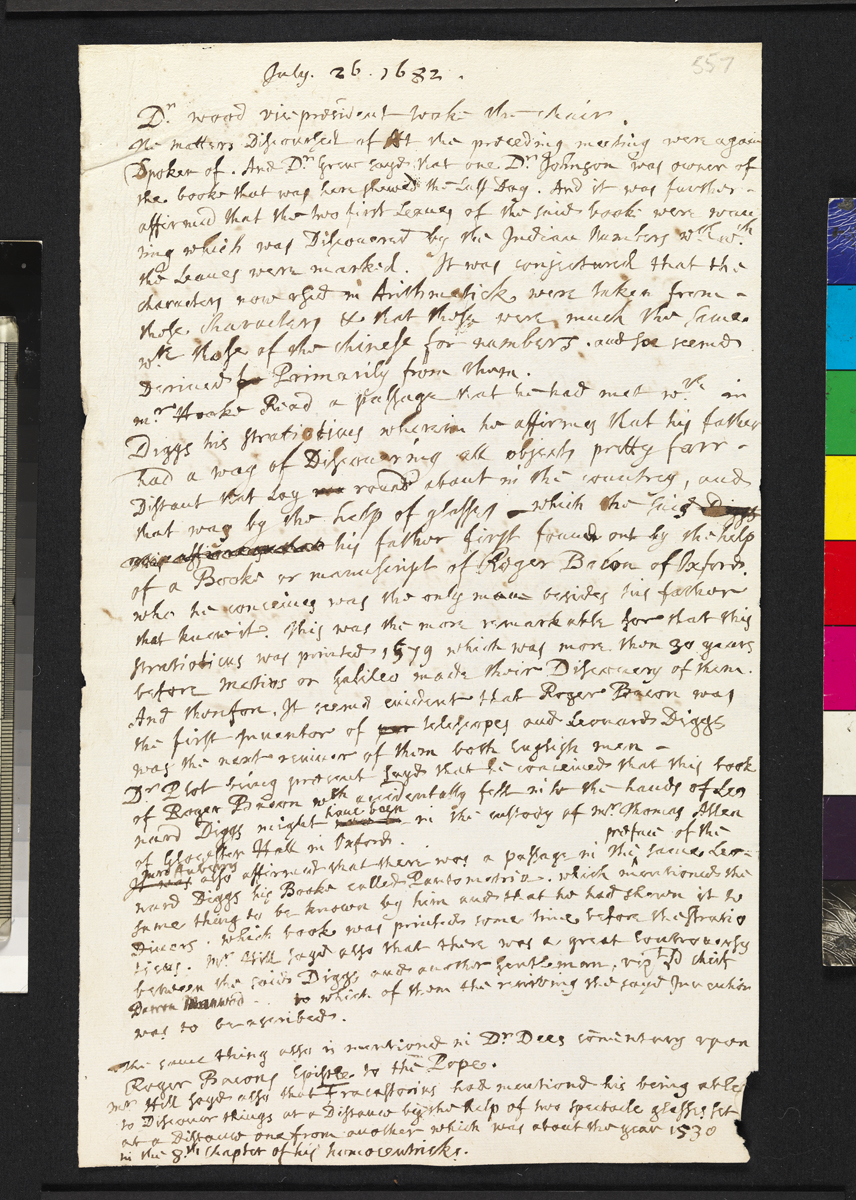 557
July. 26. 1682.
Dr wood vicepresident tooke the chair.
The matters Discoursed of At the preceding meeting were again
Spoken of. And Dr Grew sayd that one Dr Johnson was owner of
the booke that was here shewed the Last Day. And it was further -
affirmed that the two first Leaves of the said book were wan
ting which was Discovered by the Indian Numbers wth wch
the Leaves were marked. It was conjectured that the
characters now used in Arithmetick were taken from -
those Characters & that these were much the same
wth those of the chinese for numbers. and soe seemed
Derived Primarily from them.
mr Hooke Read a passage that he had met wth in
Diggs his stratioticus wherein he affirmes that his father
had a way of Discovering all objects pretty farr -
Distant that Lay round about in the countrey, and
that was by the help of glasses which the said Diggs
his father first found out by the help
of a Booke or manuscript of Roger Bacon of Oxford
who he conceives was the only man besides his father
that knew it. This was the more remarkable for that this
stratioticus was printed 1579 which was more then 30 years
before Metius or Galileo made their Discovery of them.
And therefore. It seemed evident that Roger Bacon was
the first Inventor of telescopes and Leonard Diggs
was the next reviver of them both English men -
Dr Plot being present sayd that he conceived that this book
of Roger Bacon wch accidentally fell into the hands of Leo
nard Diggs might have been in the custody of mr Thomas Allen
of Glocester Hall in Oxford.
It was also affirmed that there was a passage in the preface of the same Leo-
nard Diggs his Booke called Pantometria. which mentioned the
same thing to be known by him and that he had shewn it to
Divers. which book was printed some time before the stratio
ticus. Mr Hill sayd also that there was a great Controversy
between the said Diggs and another gentleman, vizt Ld chief
Barron - . to which of them the reviving the sayd Invention
was to be ascribed.
The same thing also is mentioned in Dr Dees comentary upon
Roger Bacons Epistle to the Pope.
Mr Hill sayd also that Fracastorius had mentiond his being able
to Discover things at a Distance by the help of two spectacle glasses set
at a distance one from another which was about the year 1530
in the 8th Chapter of his homocentricks.